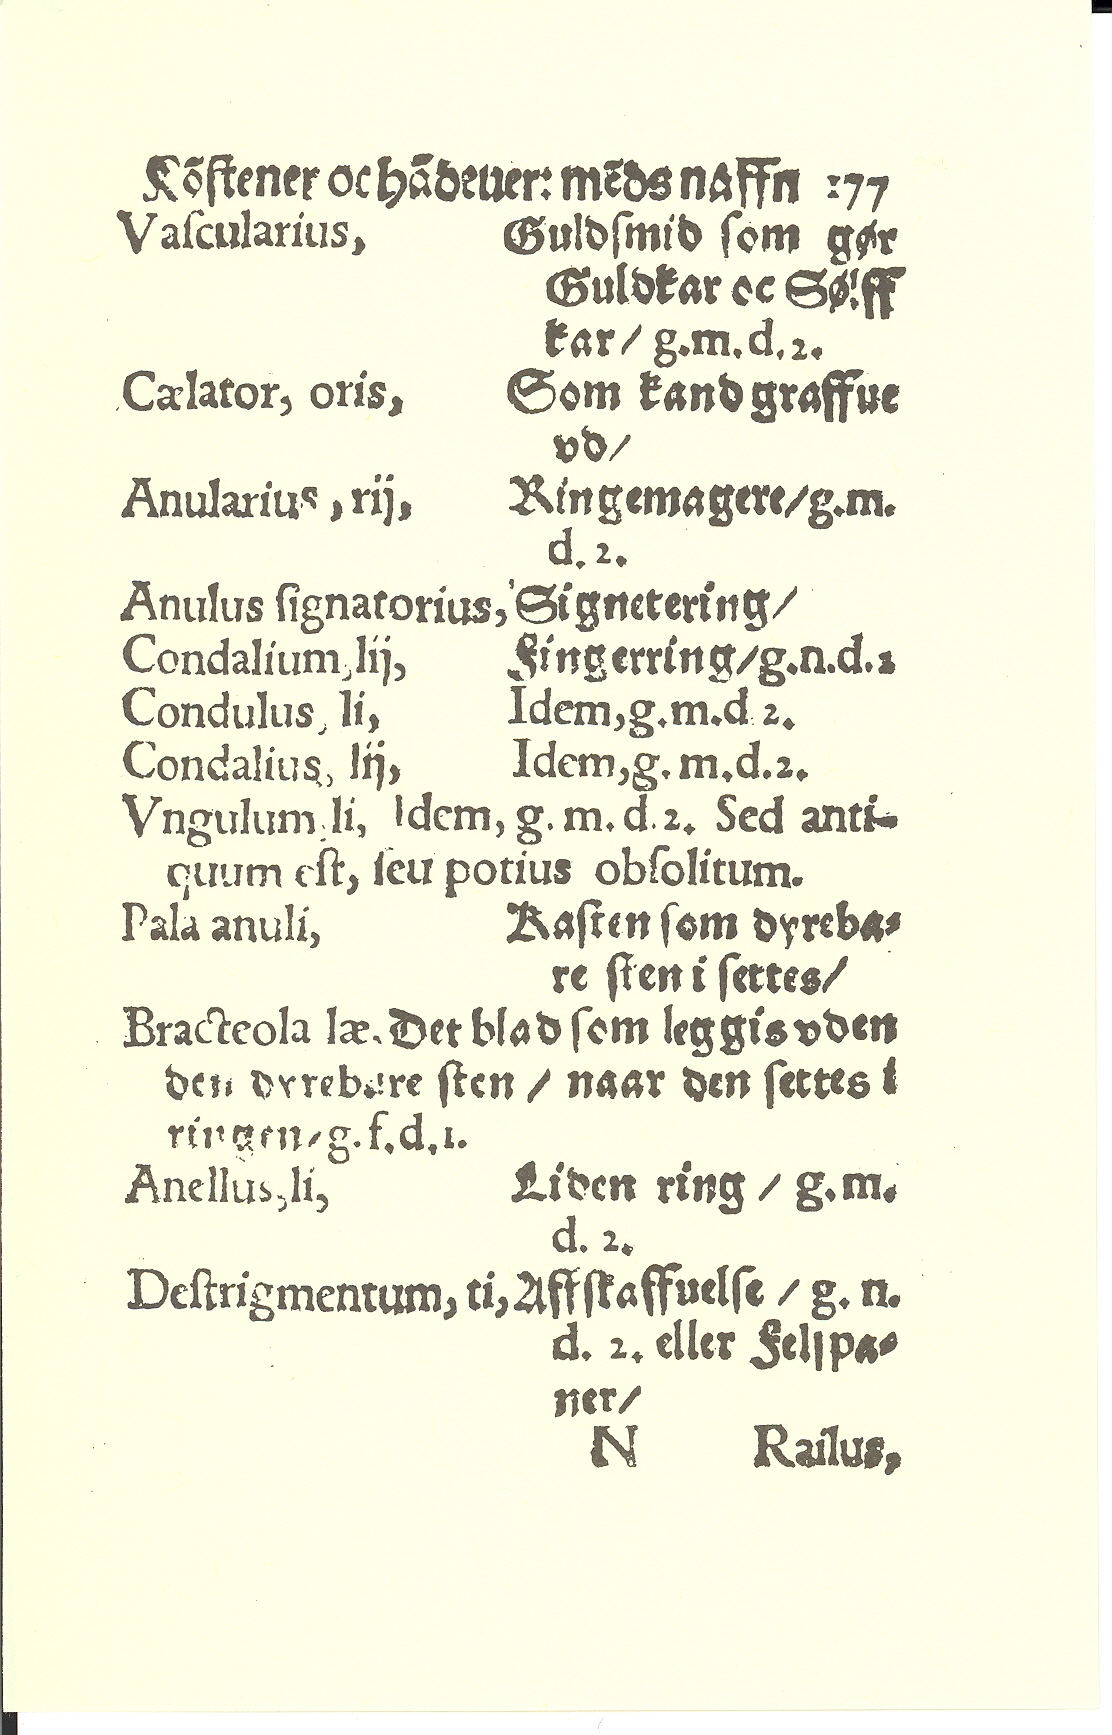 Kõstener oc hãdeuer: mẽds naffn 177
Vaſcularius, Guldſmid ſom gør
Guldkar oc Sølff
kar/ g.m.d.2.
Cælator, oris, Som kand graffue
vd/
Anularius, rij, Ringemagere/g.m.
d.2.
Anulus ſignatorius, Signetering/
Condalium, lij, Fingerring/g.n.d.2
Condulus, li, Idem,g.m.d.2.
Condalius, lij, Idem,g.m.d.2.
Vngulum, li, Idem, g.m.d.2. Sed anti-
quum eſt, ſeu potius obſolitum.
Pala anuli, Kaſten ſom dyreba-
re ſten i ſettes/
Bracteola læ. Det blad ſom leggis vden
den dyrebare ſten / naar den ſettes i
ringen/g.f.d.1.
Anellus,li, Liden ring / g.m.
d. 2.
Deſtrigmentum, ti, Affſkaffuelſe / g. n.
d. 2. eller Felſpa-
ner/
N Railus,